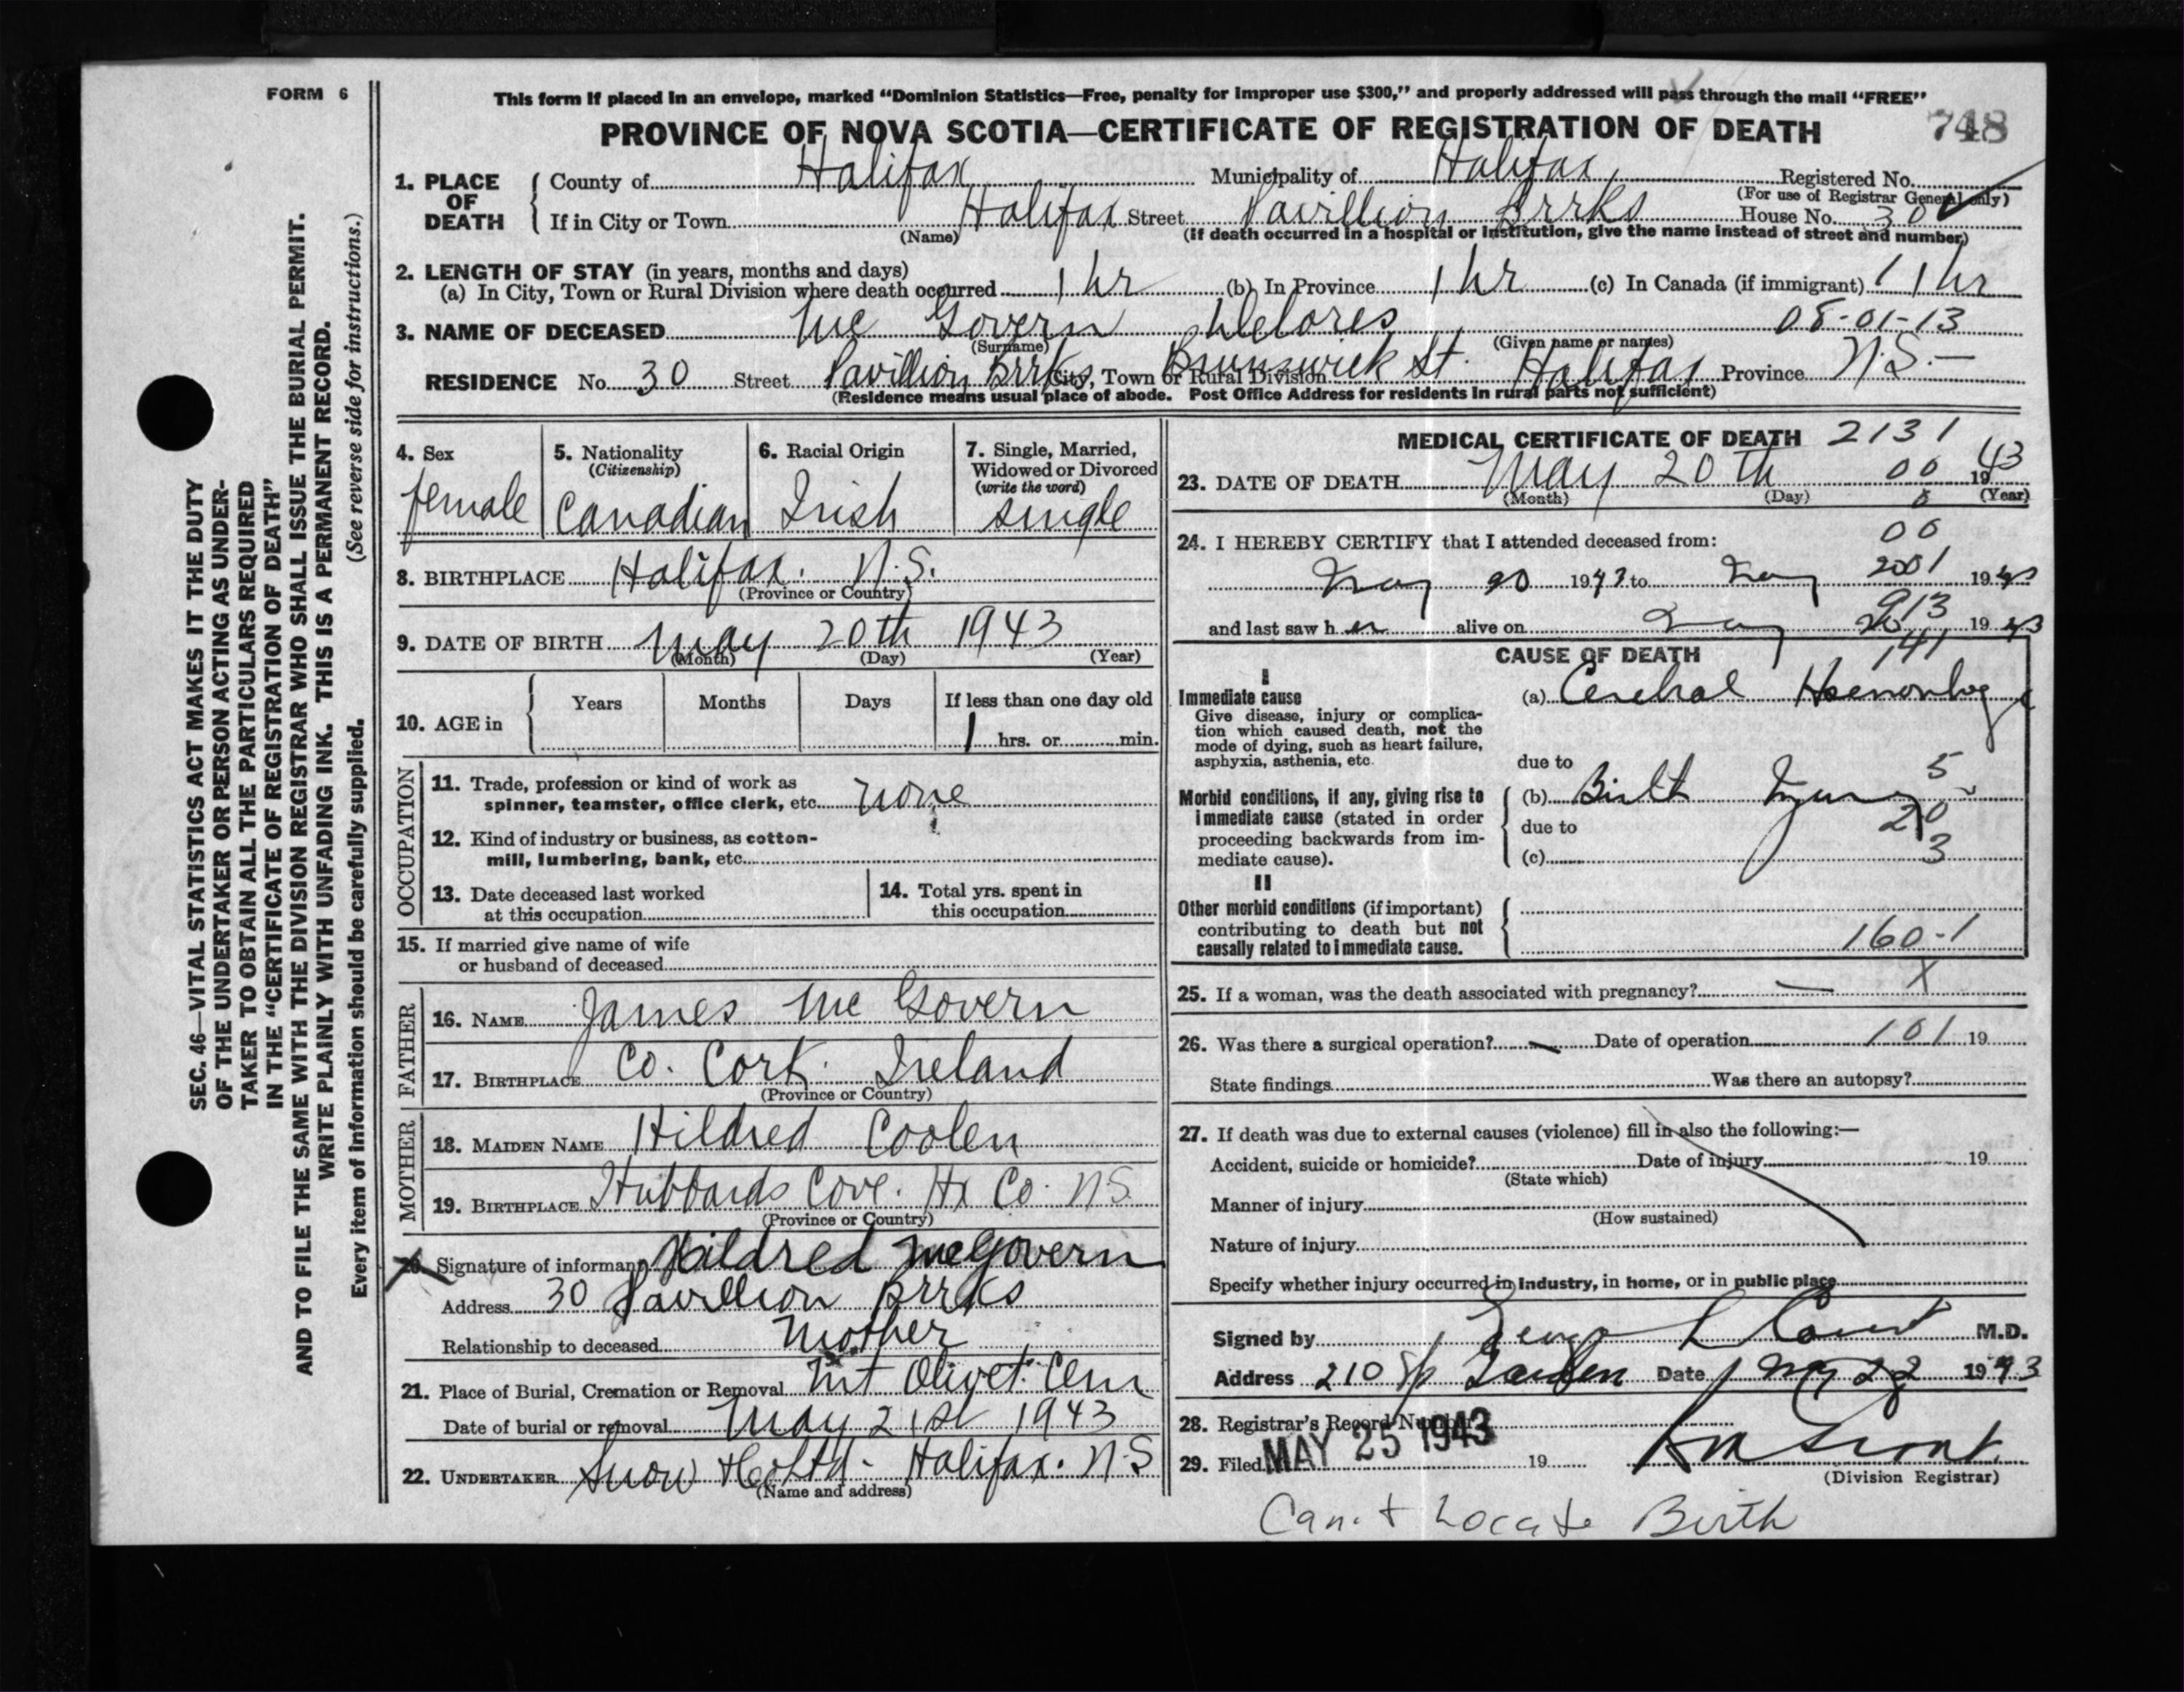 FORM 6
This form if placed in an envelope, marked “Dominion Statistics—Free, penalty for improper use $300,” and properly addressed will pass through the mail “FREE”
PROVINCE OF NOVA SCOTIA—CERTIFICATE OF REGISTRATION OF DEATH 748
1. PLACE OF DEATH { County of Halifax Municipality of Halifax Registered No.
(For use of Registrar General only)
If in City or Town Halifax Street Pavillion Brrks House No. 30
(Name) (If death occurred in a hospital or institution, give the name instead of street and number)
2. LENGTH OF STAY (in years, months and days)
(a) In City, Town or Rural Division where death occurred 1 hr (b) In Province 1 hr (c) In Canada (if immigrant) 1 hr
3. NAME OF DECEASED Mc Govern Delores 08-01-13
(Surname) (Given name or names)
RESIDENCE No. 30 Street Pavillion Brrks City, Town or Rural Division Brunswick St. Halifax Province N.S.—
(Residence means usual place of abode. Post Office Address for residents in rural parts not sufficient)
4. Sex female
5. Nationality (Citizenship) Canadian
6. Racial Origin Irish
7. Single, Married, Widowed or Divorced (write the word) single
8. BIRTHPLACE Halifax. N.S.
(Province or Country)
9. DATE OF BIRTH May 20th 1943
(Month) (Day) (Year)
10. AGE in { Years Months Days If less than one day old
1 hrs. or min.
OCCUPATION
11. Trade, profession or kind of work as
spinner, teamster, office clerk, etc. none
12. Kind of industry or business, as cotton-
mill, lumbering, bank, etc.
13. Date deceased last worked
at this occupation
14. Total yrs. spent in
this occupation
15. If married give name of wife
or husband of deceased
FATHER
16. NAME James Mc Govern
17. BIRTHPLACE Co. Cork. Ireland
(Province or Country)
MOTHER
18. MAIDEN NAME Hildred Coolen
19. BIRTHPLACE Hubbards Cove. Hx Co. N.S.
(Province or Country)
Signature of informant Hildred McGovern
Address 30 Pavillion Brrks
Relationship to deceased Mother
21. Place of Burial, Cremation or Removal Mt Olivet. Cem
Date of burial or removal May 21st 1943
22. UNDERTAKER Snow & Co Ltd - Halifax. N.S
(Name and address)
MEDICAL CERTIFICATE OF DEATH 2131
23. DATE OF DEATH May 20th 00 1943
(Month) (Day) (Year)
24. I HEREBY CERTIFY that I attended deceased from: 00
May 20 1943 to May 1943
and last saw her alive on May 1943
CAUSE OF DEATH 141
I
Immediate cause
Give disease, injury or complica-
tion which caused death, not the
mode of dying, such as heart failure,
asphyxia, asthenia, etc.
(a) Cerebral Haemorrhage
due to
Morbid conditions, if any, giving rise to
immediate cause (stated in order
proceeding backwards from im-
mediate cause).
(b) Birth Injury 5
due to
(c) 3
II
Other morbid conditions (if important)
contributing to death but not
causally related to immediate cause.
160-1
25. If a woman, was the death associated with pregnancy? — X
26. Was there a surgical operation? — Date of operation 101 19
State findings Was there an autopsy?
27. If death was due to external causes (violence) fill in also the following:—
Accident, suicide or homicide? Date of injury 19
(State which)
Manner of injury
(How sustained)
Nature of injury
Specify whether injury occurred in industry, in home, or in public place
Signed by M.D.
Address 210 Sp Garden Date May 22 1943
28. Registrar's Record Number
29. Filed MAY 25 1943 19
(Division Registrar)
Can't Locate Birth
SEC. 46—VITAL STATISTICS ACT MAKES IT THE DUTY
OF THE UNDERTAKER OR PERSON ACTING AS UNDER-
TAKER TO OBTAIN ALL THE PARTICULARS REQUIRED
IN THE “CERTIFICATE OF REGISTRATION OF DEATH”
AND TO FILE THE SAME WITH THE DIVISION REGISTRAR WHO SHALL ISSUE THE BURIAL PERMIT.
WRITE PLAINLY WITH UNFADING INK. THIS IS A PERMANENT RECORD.
(See reverse side for instructions.)
Every item of information should be carefully supplied.